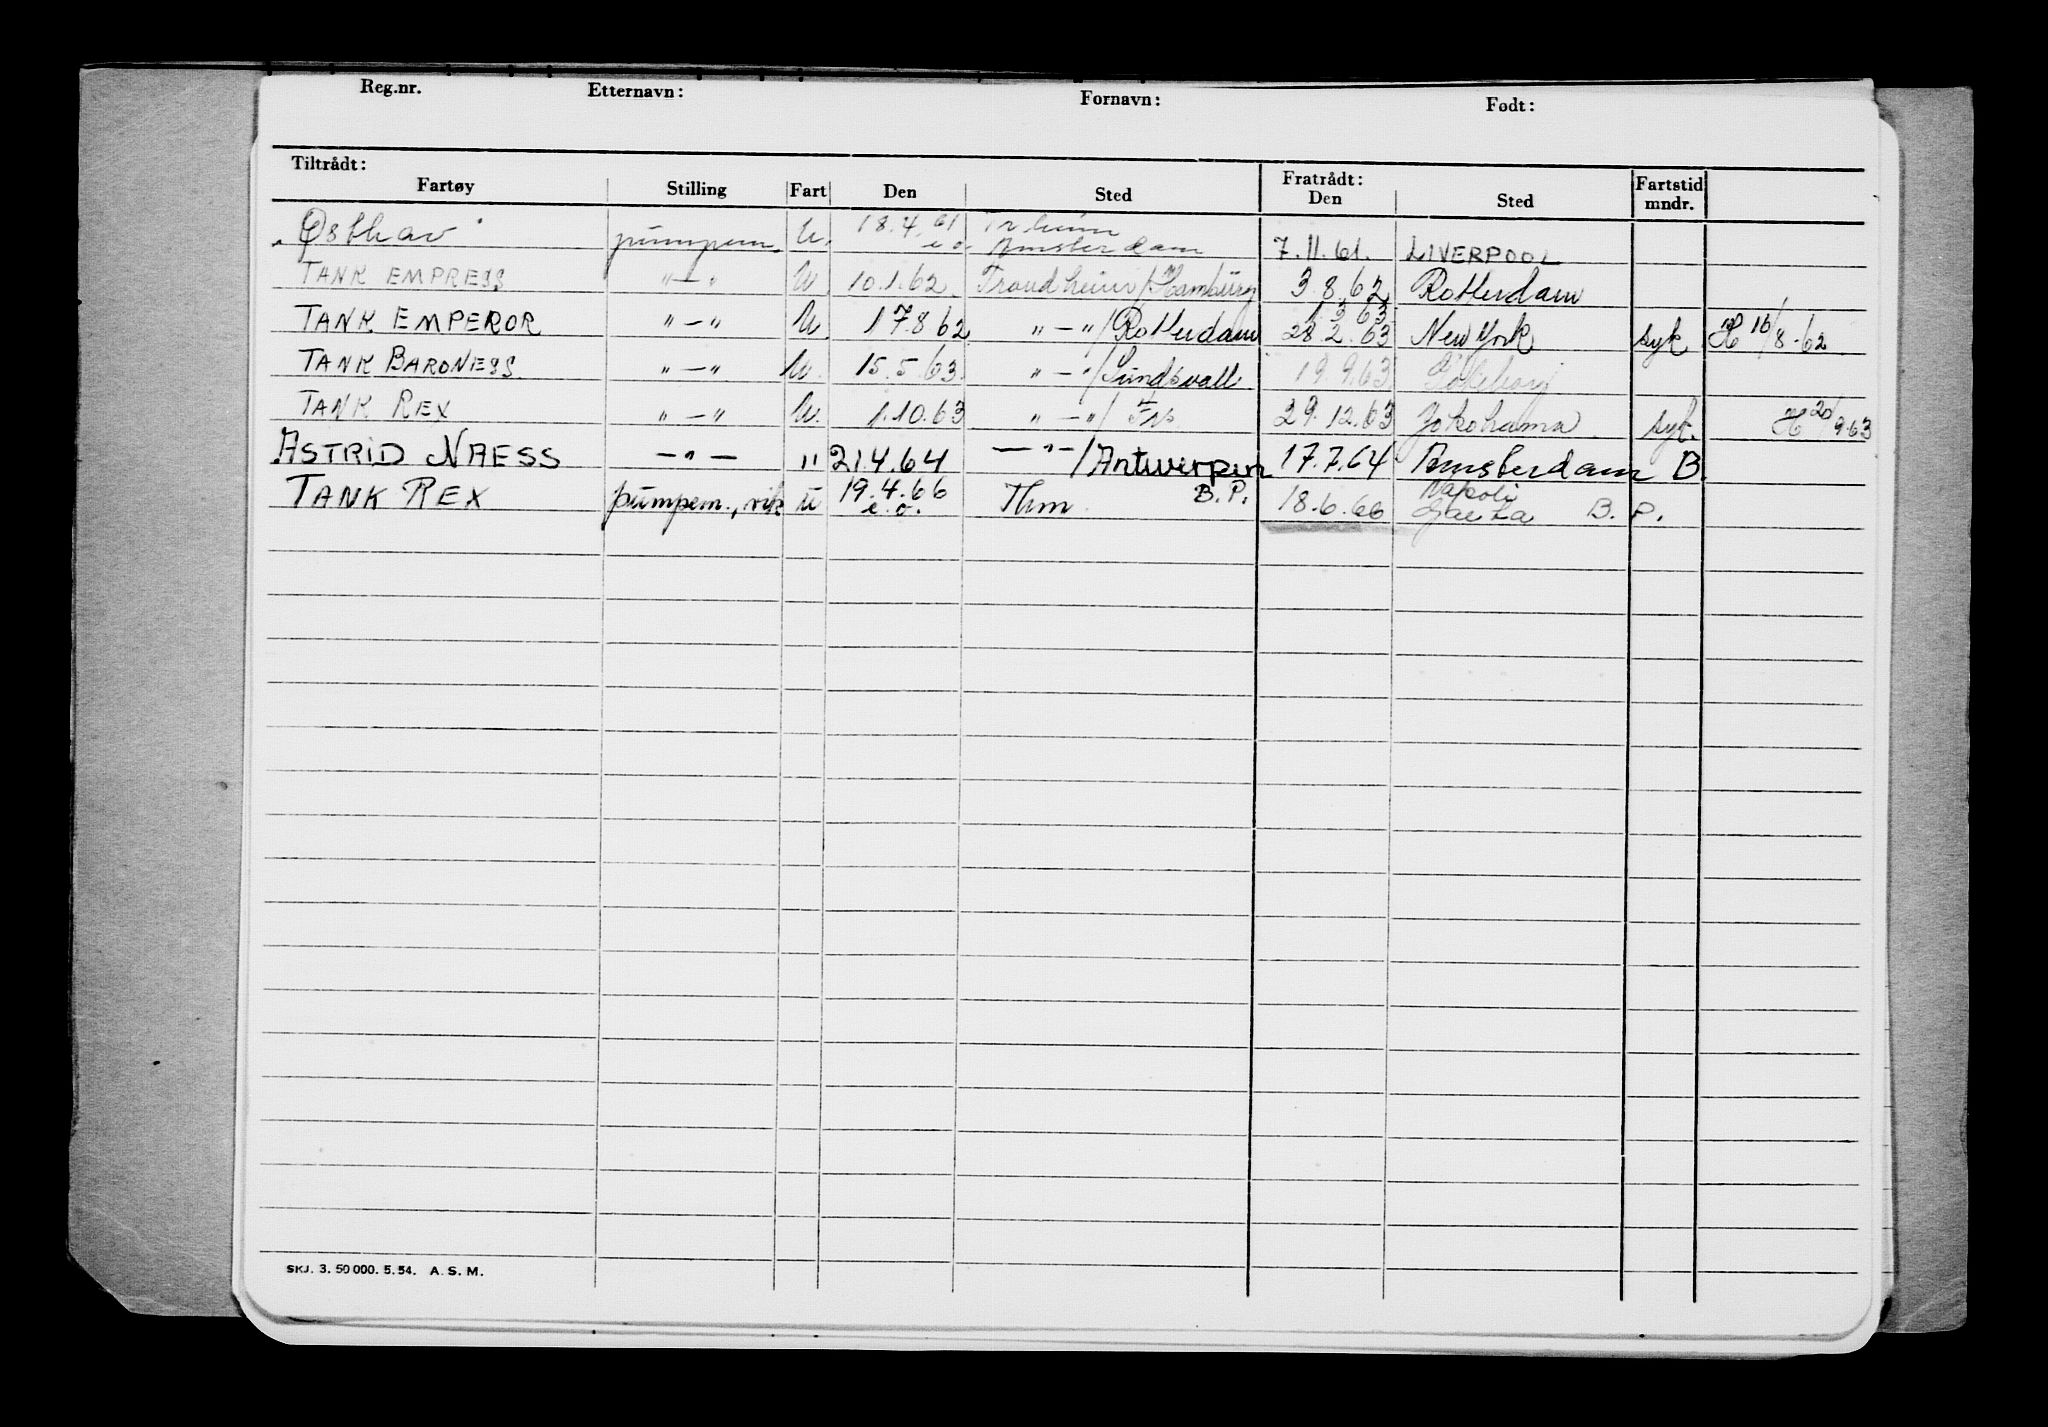 Reg.nr. Etternavn: Fornavn: Født:
Tiltrådt: Fratrådt:
Fartøy Stilling Fart Den Sted Den Sted Fartstid mndr.
Østhav pumpem. U. 18.4.61 e.o. Tr.heim Amsterdam 7.11.61. LIVERPOOL
TANK EMPRESS "—" U. 10.1.62. Trondheim/Hamburg 3.8.62 Rotterdam
TANK EMPEROR "—" U. 17.8.62 "—"/Rotterdam 1.3.63 28.2.63 New York syk H 16/8-62
TANK BARONESS "—" U. 15.5.63. "—"/Sundsvall 19.9.63 Göteborg
TANK REX "—" U. 1.10.63 "—"/ 29.12.63 Yokohama syk. H 20/9-63
ASTRID NAESS —"— " 21.4.64 —"—/Antwerpen 17.7.64 Amsterdam B.
TANK REX pumpem., vik U 19.4.66 e.o. Thm B.P. 18.6.66 Napoli Gaeta B.P.
SKJ. 3. 50 000. 5. 54. A. S. M.